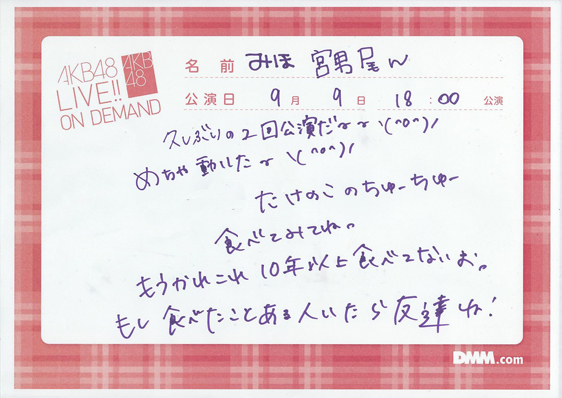 AKB48
LIVE!!
ON DEMAND
AKB
48
名前 みほ 宮男尾ん
公演日 9月 9日 18:00 公演
久しぶりの2回公演だよよ\(^o^)/
めちゃ動いたよ\(^o^)/
たけのこのちゅーちゅー
食べてみてね。
もうかれこれ10年以上食べてないお。
もし食べたことある人いたら友達ね!
DMM.com